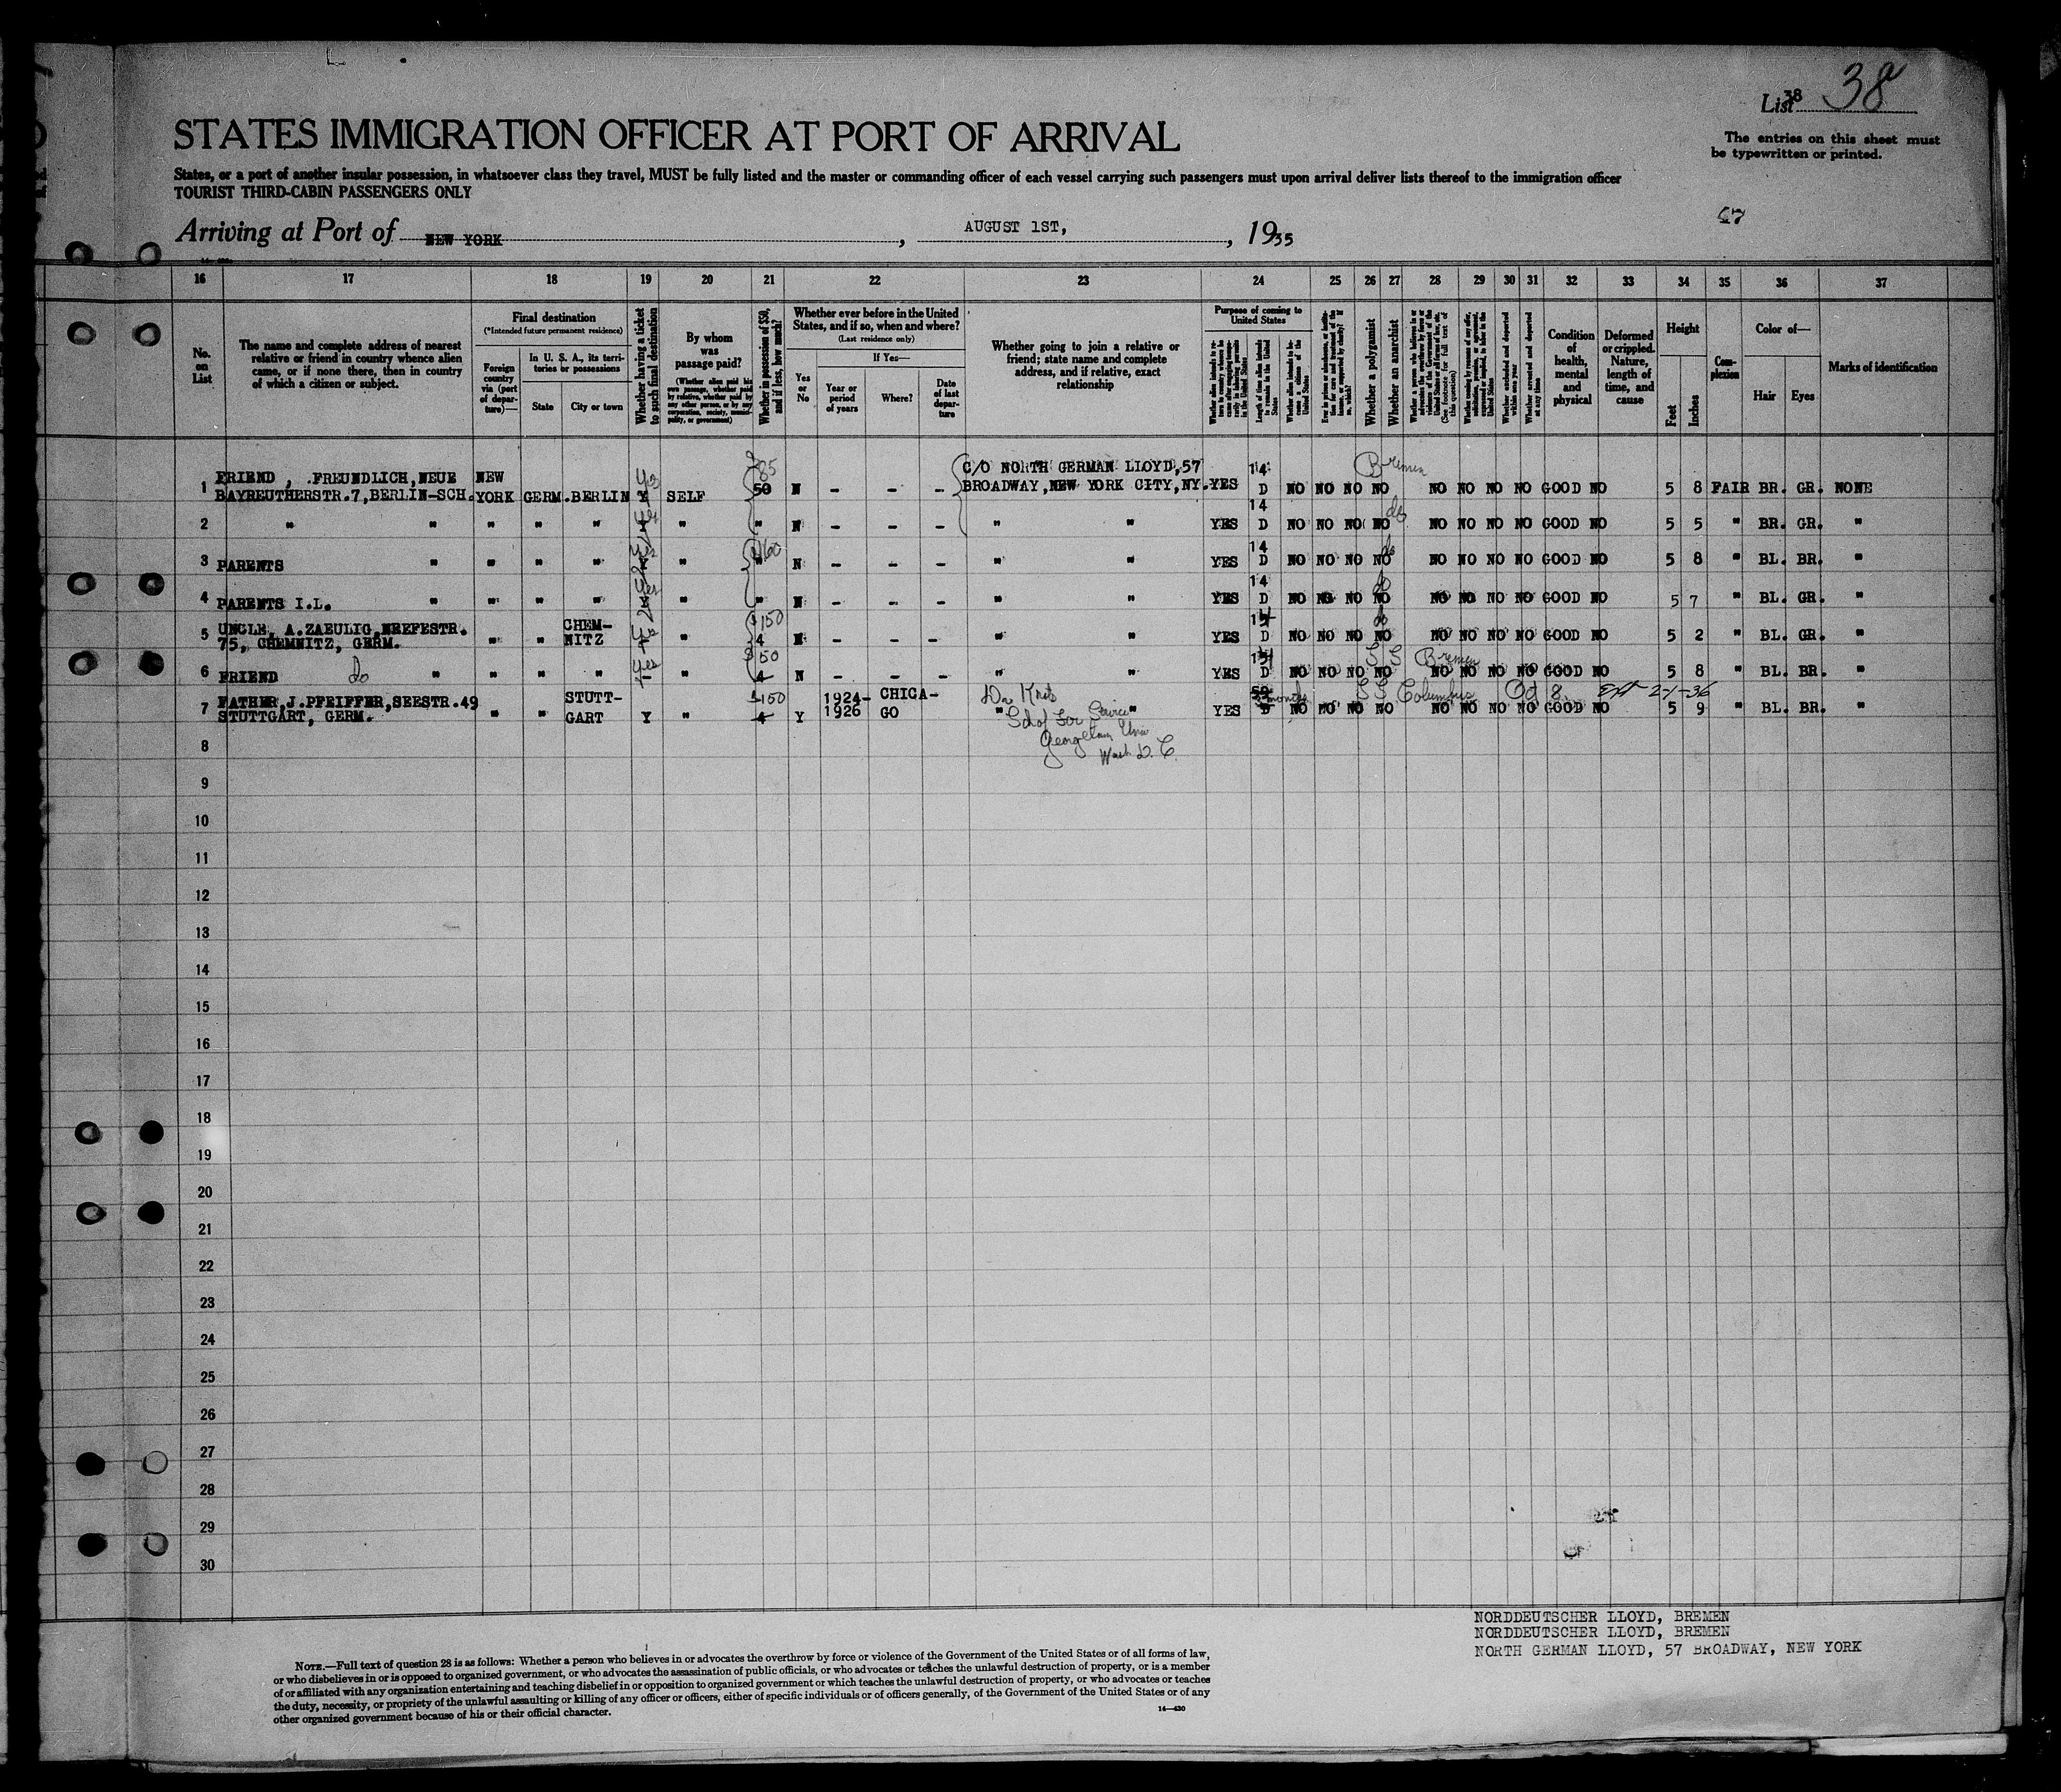 List 38 38a
STATES IMMIGRATION OFFICER AT PORT OF ARRIVAL
The entries on this sheet must
be typewritten or printed.
States, or a port of another insular possession, in whatsoever class they travel, MUST be fully listed and the master or commanding officer of each vessel carrying such passengers must upon arrival deliver lists thereof to the immigration officer
TOURIST THIRD-CABIN PASSENGERS ONLY
Arriving at Port of NEW YORK, AUGUST 1ST, 1935
16 17 18 19 20 21 22 23 24 25 26 27 28 29 30 31 32 33 34 35 36 37
No. on List
The name and complete address of nearest relative or friend in country whence alien came, or if none there, then in country of which a citizen or subject.
Final destination
(*Intended future permanent residence)
Foreign country via (port of departure)—
In U. S. A., its territories or possessions
State
City or town
Whether having a ticket to such final destination
By whom was passage paid?
(Whether alien paid his own passage, whether paid by relative, whether paid by any other person, or by any corporation, society, municipality, or government)
Whether in possession of $50, and if less, how much?
Whether ever before in the United States, and if so, when and where?
(Last residence only)
Yes or No
If Yes—
Year or period of years
Where?
Date of last departure
Whether going to join a relative or friend; state name and complete address, and if relative, exact relationship
Purpose of coming to United States
Length of time alien intends to remain in the United States
Whether alien intends to become a citizen of the United States
Whether a polygamist
Whether an anarchist
Whether excluded and deported within one year
Whether arrested and deported at any time
Condition of health, mental and physical
Deformed or crippled. Nature, length of time, and cause
Height
Feet
Inches
Complexion
Color of—
Hair
Eyes
Marks of identification
FRIEND, .FREUNDLICH,NEUE NEW yes 85 C/O NORTH GERMAN LLOYD,57 14 Bremen
1 BAYREUTHERSTR.7,BERLIN-SCH. YORK GERM. BERLIN Y SELF 50 N - - - BROADWAY,NEW YORK CITY,NY. YES D NO NO NO NO NO NO NO NO GOOD NO 5 8 FAIR BR. GR. NONE
2 " " " " " yes " " N - - - " " YES 14 D NO NO NO NO do NO NO NO NO GOOD NO 5 5 " BR. GR. "
3 PARENTS " " " " yes " 160 " N - - - " " YES 14 D NO NO NO NO do NO NO NO NO GOOD NO 5 8 " BL. BR. "
4 PARENTS I.L. " " " " yes " " N - - - " " YES 14 D NO NO NO NO do NO NO NO NO GOOD NO 5 7 " BL. GR. "
UNCLE, A.ZAEULIG,NREFESTR. CHEM- $150
5 75, CHEMNITZ, GERM. " " NITZ yes " 4 N - - - " " YES D NO NO NO NO do NO NO NO NO GOOD NO 5 2 " BL. GR. "
$50 SS Bremen
6 FRIEND do " " " " yes " 4 N - - - " " YES D NO NO NO NO NO NO NO NO GOOD NO 5 8 " BL. BR. "
FATHER,J.PFEIFFER,SEESTR.49 STUTT- $150 1924- CHICA- months SS Columbus Oct 8, Ext 2-1-36
7 STUTTGART, GERM. " " GART Y " 4 Y 1926 GO " " YES D NO NO NO NO NO NO NO NO GOOD NO 5 9 " BL. BR. "
Service
Wash D. C.
8
9
10
11
12
13
14
15
16
17
18
19
20
21
22
23
24
25
26
27
28
29
30
NORDDEUTSCHER LLOYD, BREMEN
NORDDEUTSCHER LLOYD, BREMEN
NORTH GERMAN LLOYD, 57 BROADWAY, NEW YORK
NOTE.—Full text of question 28 is as follows: Whether a person who believes in or advocates the overthrow by force or violence of the Government of the United States or of all forms of law,
or who disbelieves in or is opposed to organized government, or who advocates the assassination of public officials, or who advocates or teaches the unlawful destruction of property, or is a member
of or affiliated with any organization entertaining and teaching disbelief in or opposition to organized government or which teaches the unlawful destruction of property, or who advocates or teaches
the duty, necessity, or propriety of the unlawful assaulting or killing of any officer or officers, either of specific individuals or of officers generally, of the Government of the United States or of any
other organized government because of his or their official character.
14—430